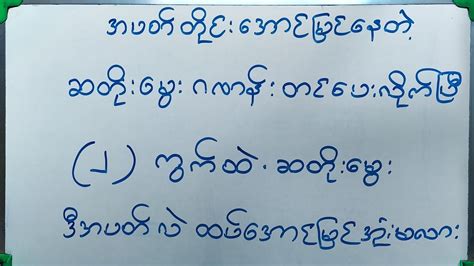 အပတ်တိုင်းအောင်မြင်နေတဲ့
ဆတိုးမွေး ဂဏန်းတင်ပေးလိုက်ပြီ
(၂) ကွက်ထဲ. ဆတိုးမွေး
ဒီအပတ်လဲ ထပ်အောင်မြင်အုံးမလား